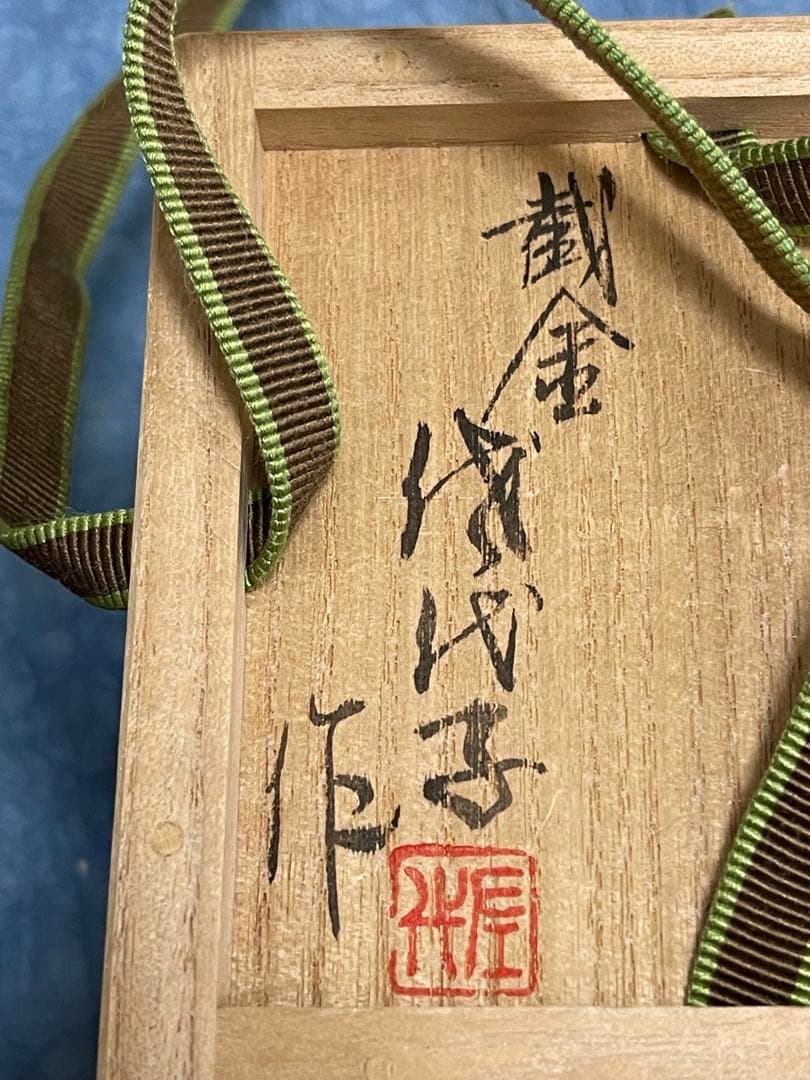 截金
佐代子
作